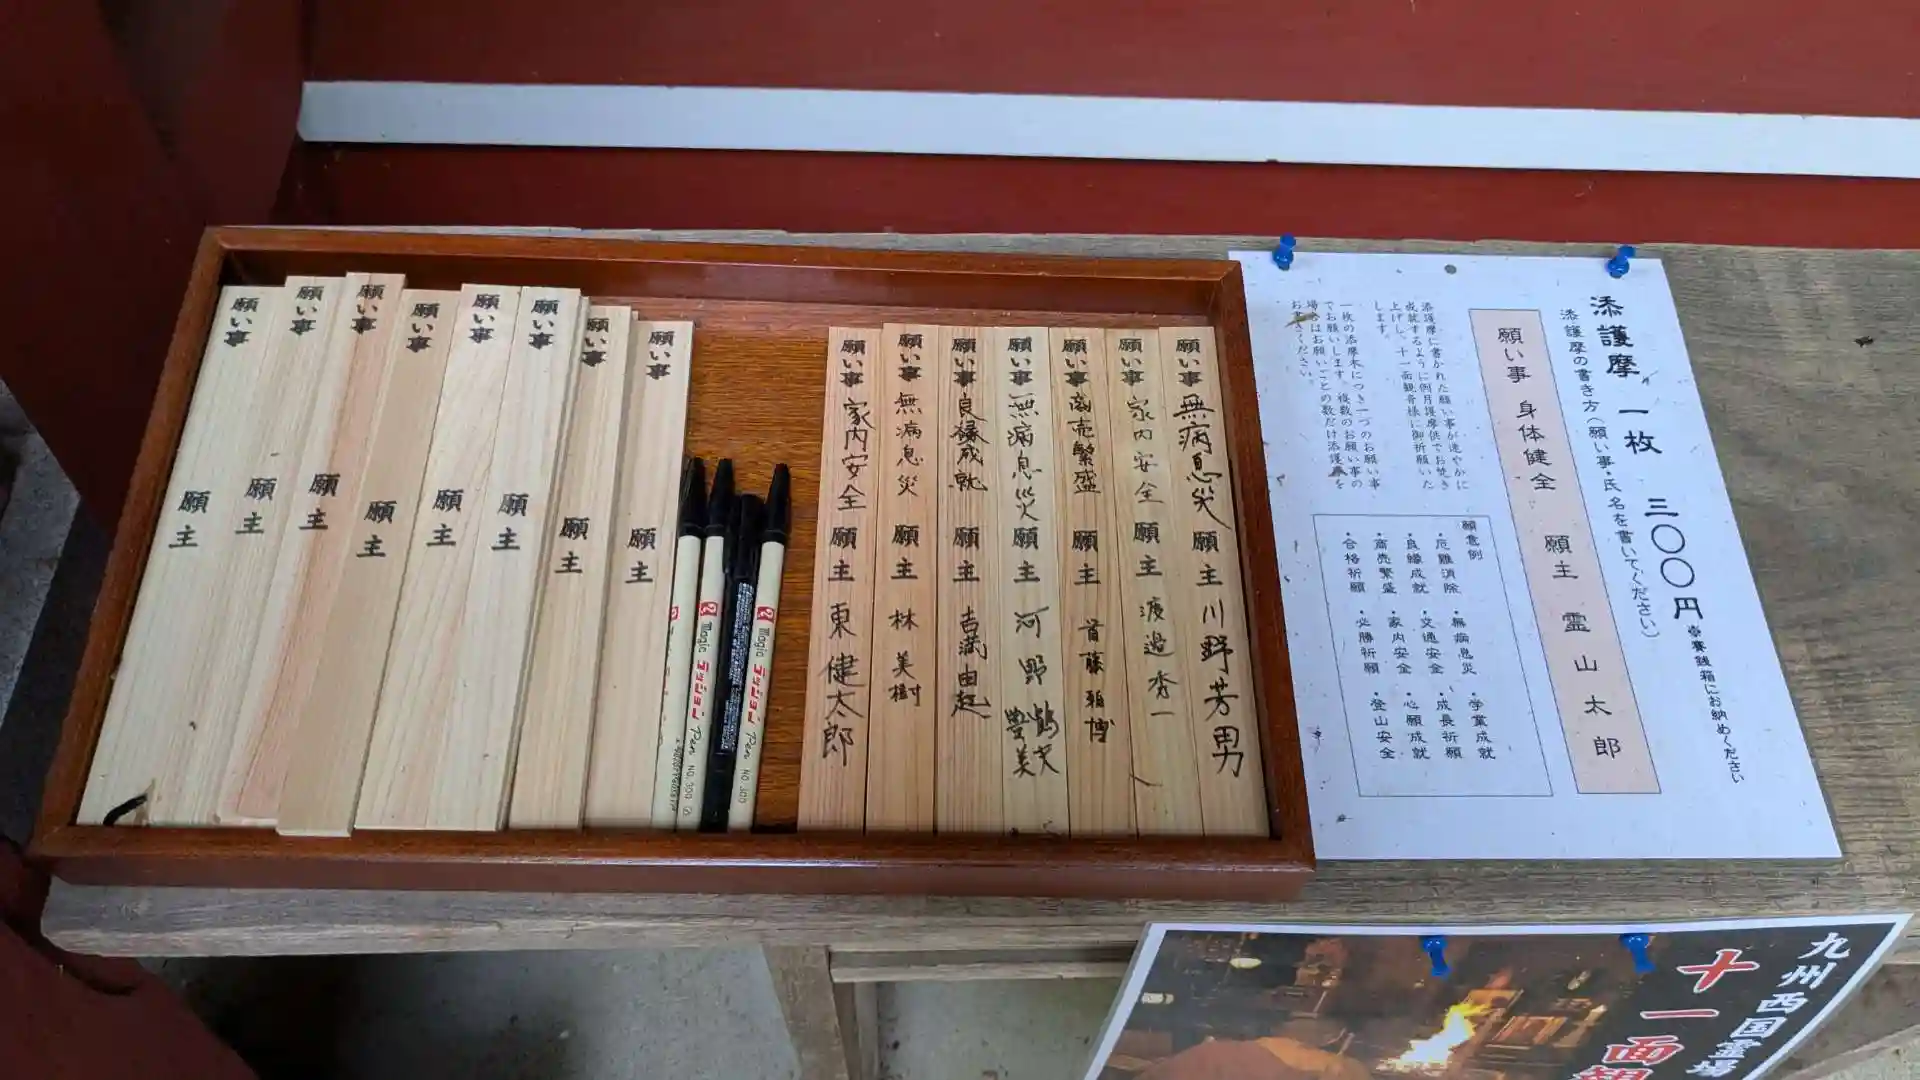 添護摩 一枚 三〇〇円 ※賽銭箱にお納めください
添護摩の書き方(願い事氏名を書いてください)
願い事 身体健全 願主 霊山太郎
添護摩に書かれた願い事が速やかに
成就するように例月護摩供でお焚き
上げし、十一面観音様に御祈願いた
します。
一枚の添摩木につき一つのお願い事
でお願いします。複数のお願い事の
場合はお願いごとの数だけ添護摩を
お書きください。
願意例
・厄難消除 ・無病息災 ・学業成就
・良縁成就 ・交通安全 ・成長祈願
・商売繁盛 ・家内安全 ・心願成就
・合格祈願 ・必勝祈願 ・登山安全
願い事 無病息災 願主 川野芳男
願い事 家内安全 願主 渡邉秀一
願い事 商売繁盛 願主 首藤 博
願い事 無病息災 願主 河野
願い事 良縁成就 願主 吉満由起
願い事 無病息災 願主 林 美樹
願い事 家内安全 願主 東 健太郎
願い事 願主
願い事 願主
願い事 願主
願い事 願主
願い事 願主
願い事 願主
願い事 願主
願い事 願主
Magic ラッションPen NO.300
Magic ラッションPen NO.300
九州西国霊場
十一面観